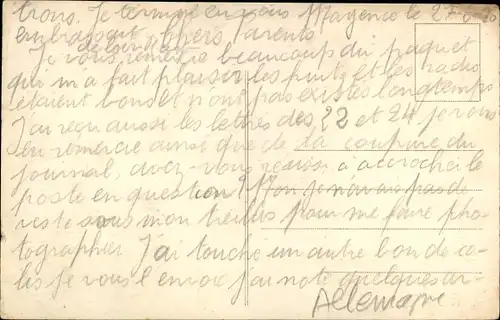 trons. Je termine en vous Mayence le 27
embrassant Chers Parents
de loin
Je vous remercie beaucoup du paquet
qui m'a fait plaisir les fruits et les radis
étaient bons et n'ont pas existés longtemps
J'ai reçu aussi les lettres des 22 et 24 je vous
en remercie ainsi que de la coupure du
journal, avez-vous réussi à accrocher le
poste en question? Non je n'avais pas de
veste sous mon treillis pour me faire pho-
tographier. J'ai touché un autre bon de co-
lis je vous l'envoie j'ai noté quelques ar-
Allemagne